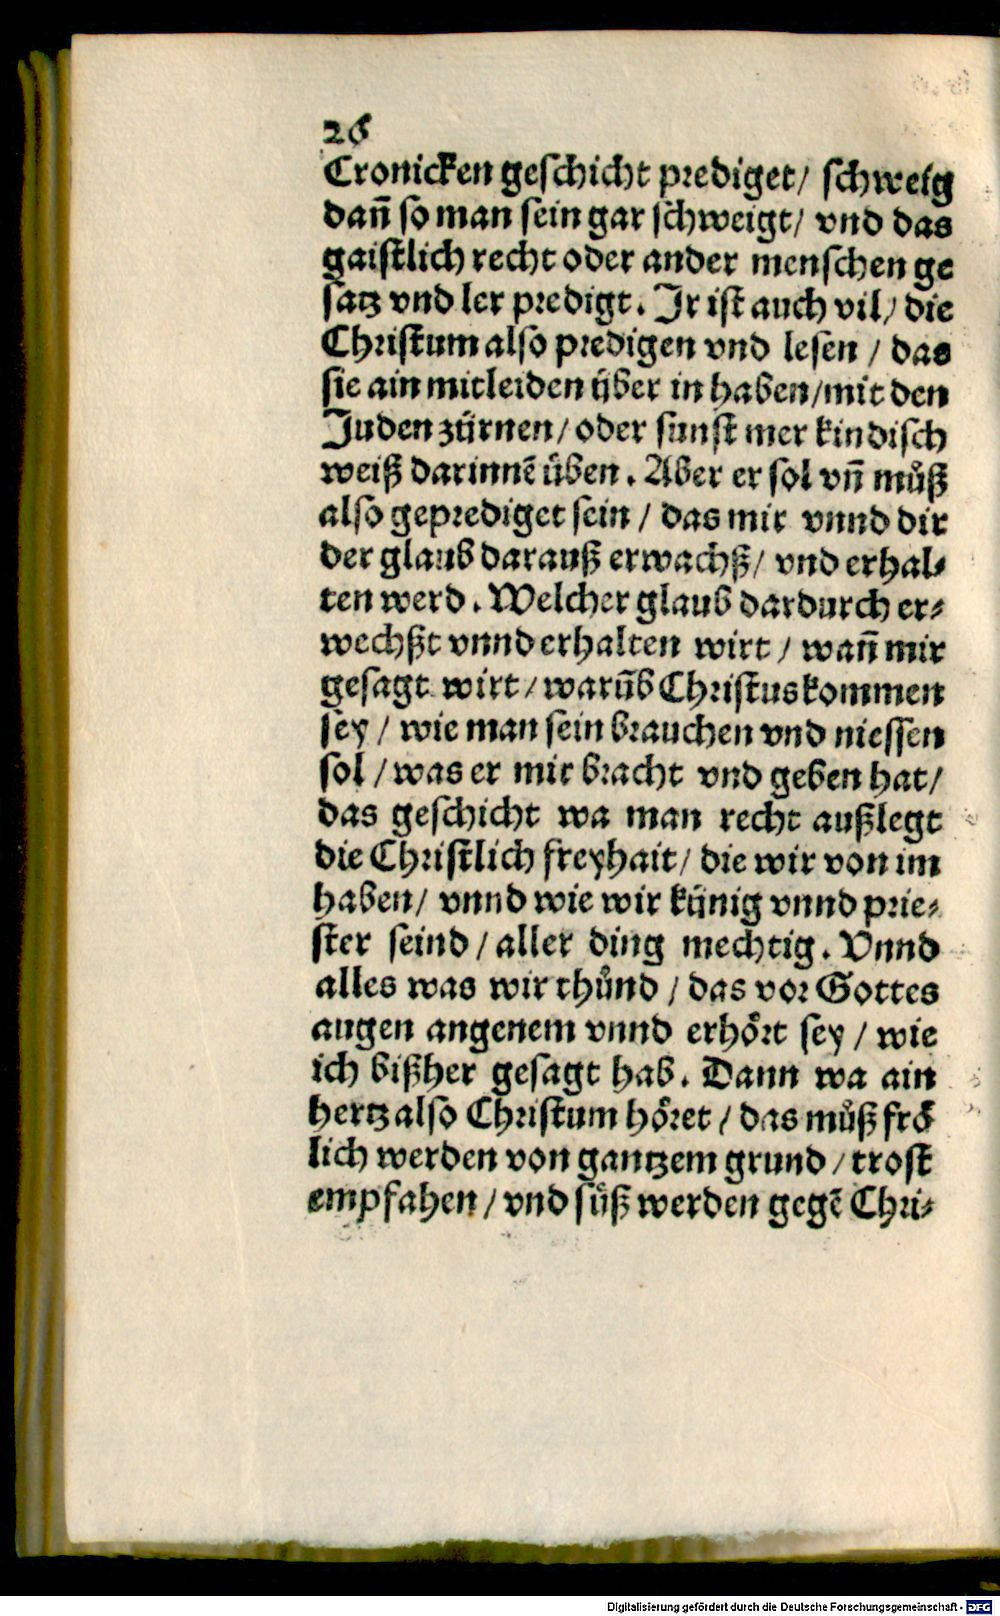 26
Cronicken geschicht prediget/ schweig
dañ so man sein gar schweigt/ vnd das
gaistlich recht oder ander menschen ge
satz vnd ler predigt. Jr ist auch vil/ die
Christum also predigen vnd lesen / das
sie ain mitleiden über in haben/mit den
Juden zürnen/ oder sunst mer kindisch
weiß darinnẽ üben. Aber er sol vñ můß
also geprediget sein / das mir vnnd dir
der glaub darauß erwachß/ vnd erhal-
ten werd. Welcher glaub dardurch er-
wechßt vnnd erhalten wirt / wañ mir
gesagt wirt / warũb Christus kommen
sey / wie man sein brauchen vnd niessen
sol / was er mir bracht vnd geben hat/
das geschicht wa man recht außlegt
die Christlich freyhait/ die wir von im
haben/ vnnd wie wir künig vnnd prie-
ster seind / aller ding mechtig. Vnnd
alles was wir thůnd / das vor Gottes
augen angenem vnnd erhört sey / wie
ich bißher gesagt hab. Dann wa ain
hertz also Christum höret / das můß frö
lich werden von gantzem grund / trost
empfahen / vnd süß werden gegẽ Chri-
Digitalisierung gefördert durch die Deutsche Forschungsgemeinschaft - DFG